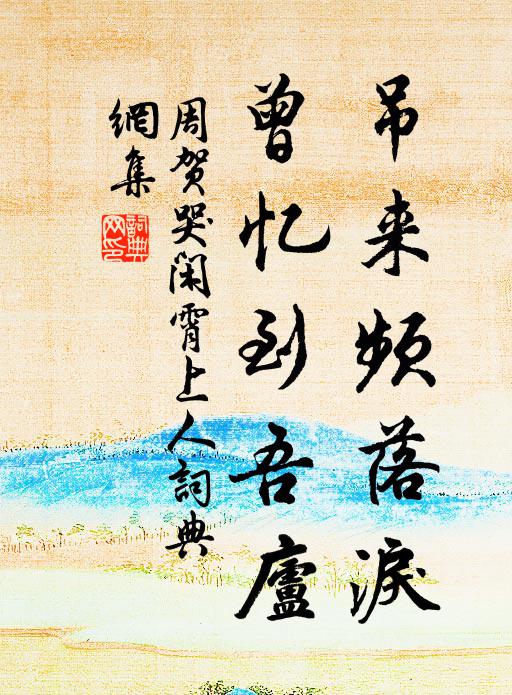 吊来频落淚
曾忆到吾廬
周贺哭闲霄上人詞典
網集
詞典网印